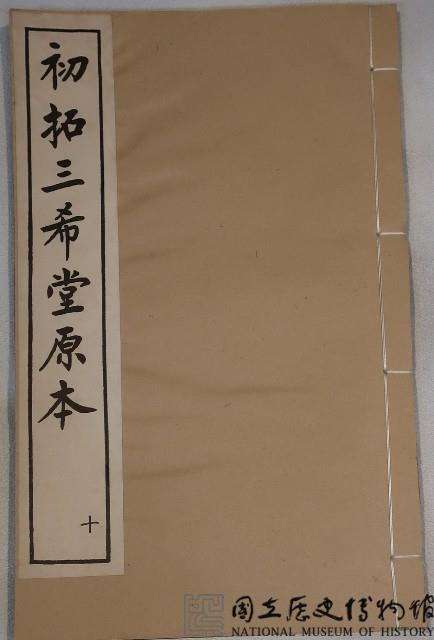 初拓三希堂原本
十
國立歷史博物館
NATIONAL MUSEUM OF HISTORY